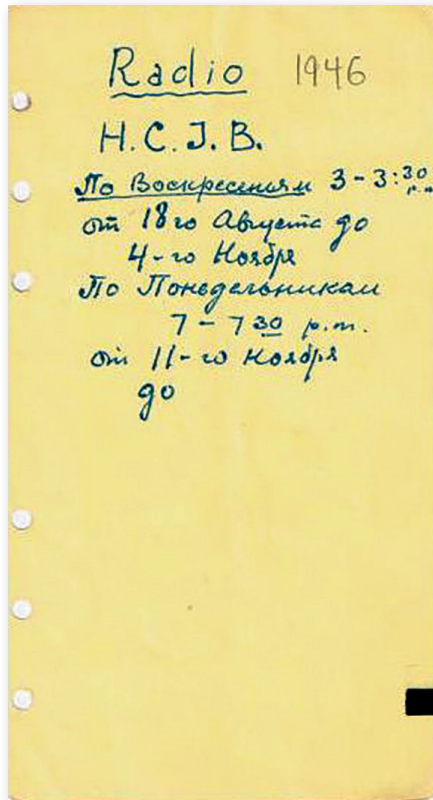 Radio 1946
H.C.J.B.
По Воскресениям 3-3:30 p.m.
от 18го Августа до
4-го Ноября
По Понедельникам
7-7 30 p.m.
от 11-го Ноября
до